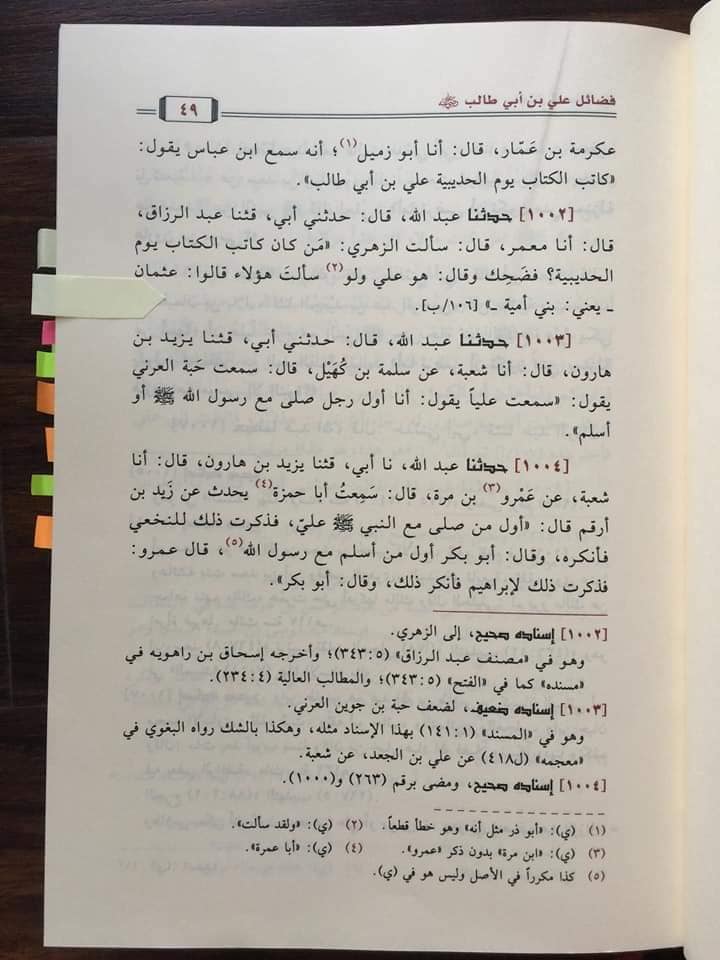 فضائل علي بن أبي طالب رضي الله عنه
٤٩
عكرمة بن عَمّار، قال: أنا أبو زميل(١)؛ أنه سمع ابن عباس يقول:
«كاتب الكتاب يوم الحديبية علي بن أبي طالب».
[١٠٠٢] حدثنا عبد الله، قال: حدثني أبي، قثنا عبد الرزاق،
قال: أنا معمر، قال: سألت الزهري: «مَن كان كاتب الكتاب يوم
الحديبية؟ فضَحِك وقال: هو علي ولو(٢) سألتَ هؤلاء قالوا: عثمان
ـ يعني: بني أمية ـ» [١٠٦/ب].
[١٠٠٣] حدثنا عبد الله، قال: حدثني أبي، قثنا يزيد بن
هارون، قال: أنا شعبة، عن سلمة بن كُهَيْل، قال: سمعت حَبة العرني
يقول: «سمعت علياً يقول: أنا أول رجل صلى مع رسول الله ﷺ أو
أسلم».
[١٠٠٤] حدثنا عبد الله، نا أبي، قثنا يزيد بن هارون، قال: أنا
شعبة، عن عَمْرو(٣) بن مرة، قال: سَمِعتُ أبا حمزة(٤) يحدث عن زَيد بن
أرقم قال: «أول من صلى مع النبي ﷺ عليّ، فذكرت ذلك للنخعي
فأنكره، وقال: أبو بكر أول من أسلم مع رسول الله(٥)، قال عمرو:
فذكرت ذلك لإبراهيم فأنكر ذلك، وقال: أبو بكر».
[١٠٠٢] إسناده صحيح، إلى الزهري.
وهو في «مصنف عبد الرزاق» (٥: ٣٤٣)؛ وأخرجه إسحاق بن راهويه في
«مسنده» كما في «الفتح» (٥: ٣٤٣)؛ والمطالب العالية (٤: ٢٣٤).
[١٠٠٣] إسناده ضعيف، لضعف حبة بن جوين العرني.
وهو في «المسند» (١: ١٤١) بهذا الإسناد مثله، وهكذا بالشك رواه البغوي في
«معجمه» (ل٤١٨) عن علي بن الجعد، عن شعبة.
[١٠٠٤] إسناده صحيح، ومضى برقم (٢٦٣) و(١٠٠٠).
(١) (ي): «أبو ذر مثل أنه» وهو خطأ قطعاً. (٢) (ي): «ولقد سألت».
(٣) (ي): «ابن مرة» بدون ذكر «عمرو». (٤) (ي): «أبا عمرة».
(٥) كذا مكرراً في الأصل وليس هو في (ي).